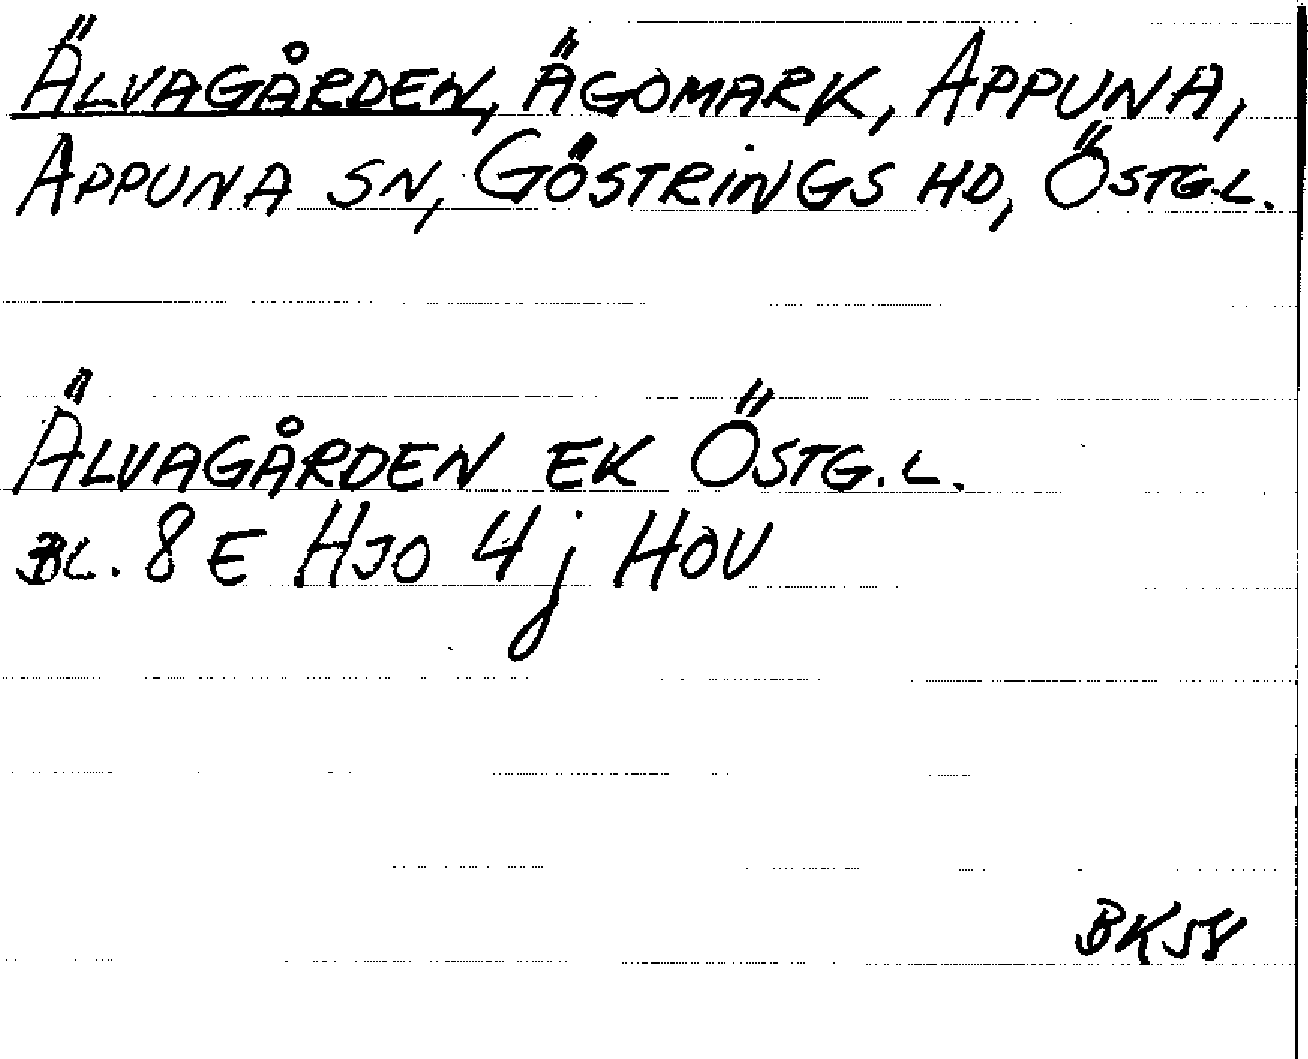 Älvagården, Ägomark, Appuna,
Appuna sn, Göstrings hd, Östg.l.
Älvagården ek Östg.l.
Bl. 8 E Hjo 4 j Hov